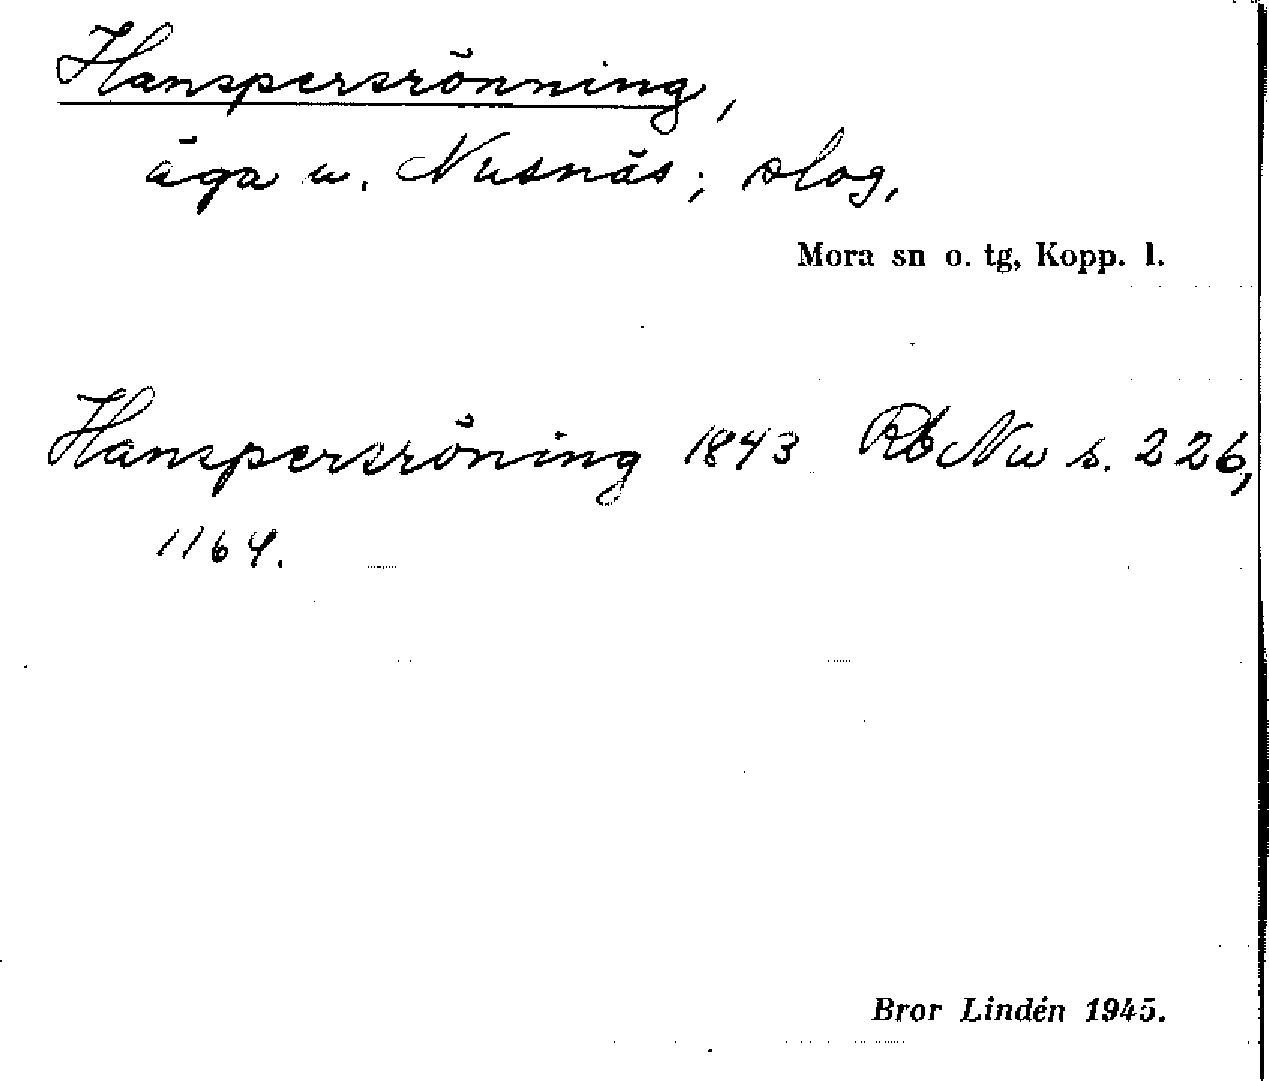 Hanspersrönning,
äga u. Nusnäs; slog,
Mora sn o. tg, Kopp. l.
Hanspersröning 1843 Rb Nu s. 226,
1164.
Bror Lindén 1945.